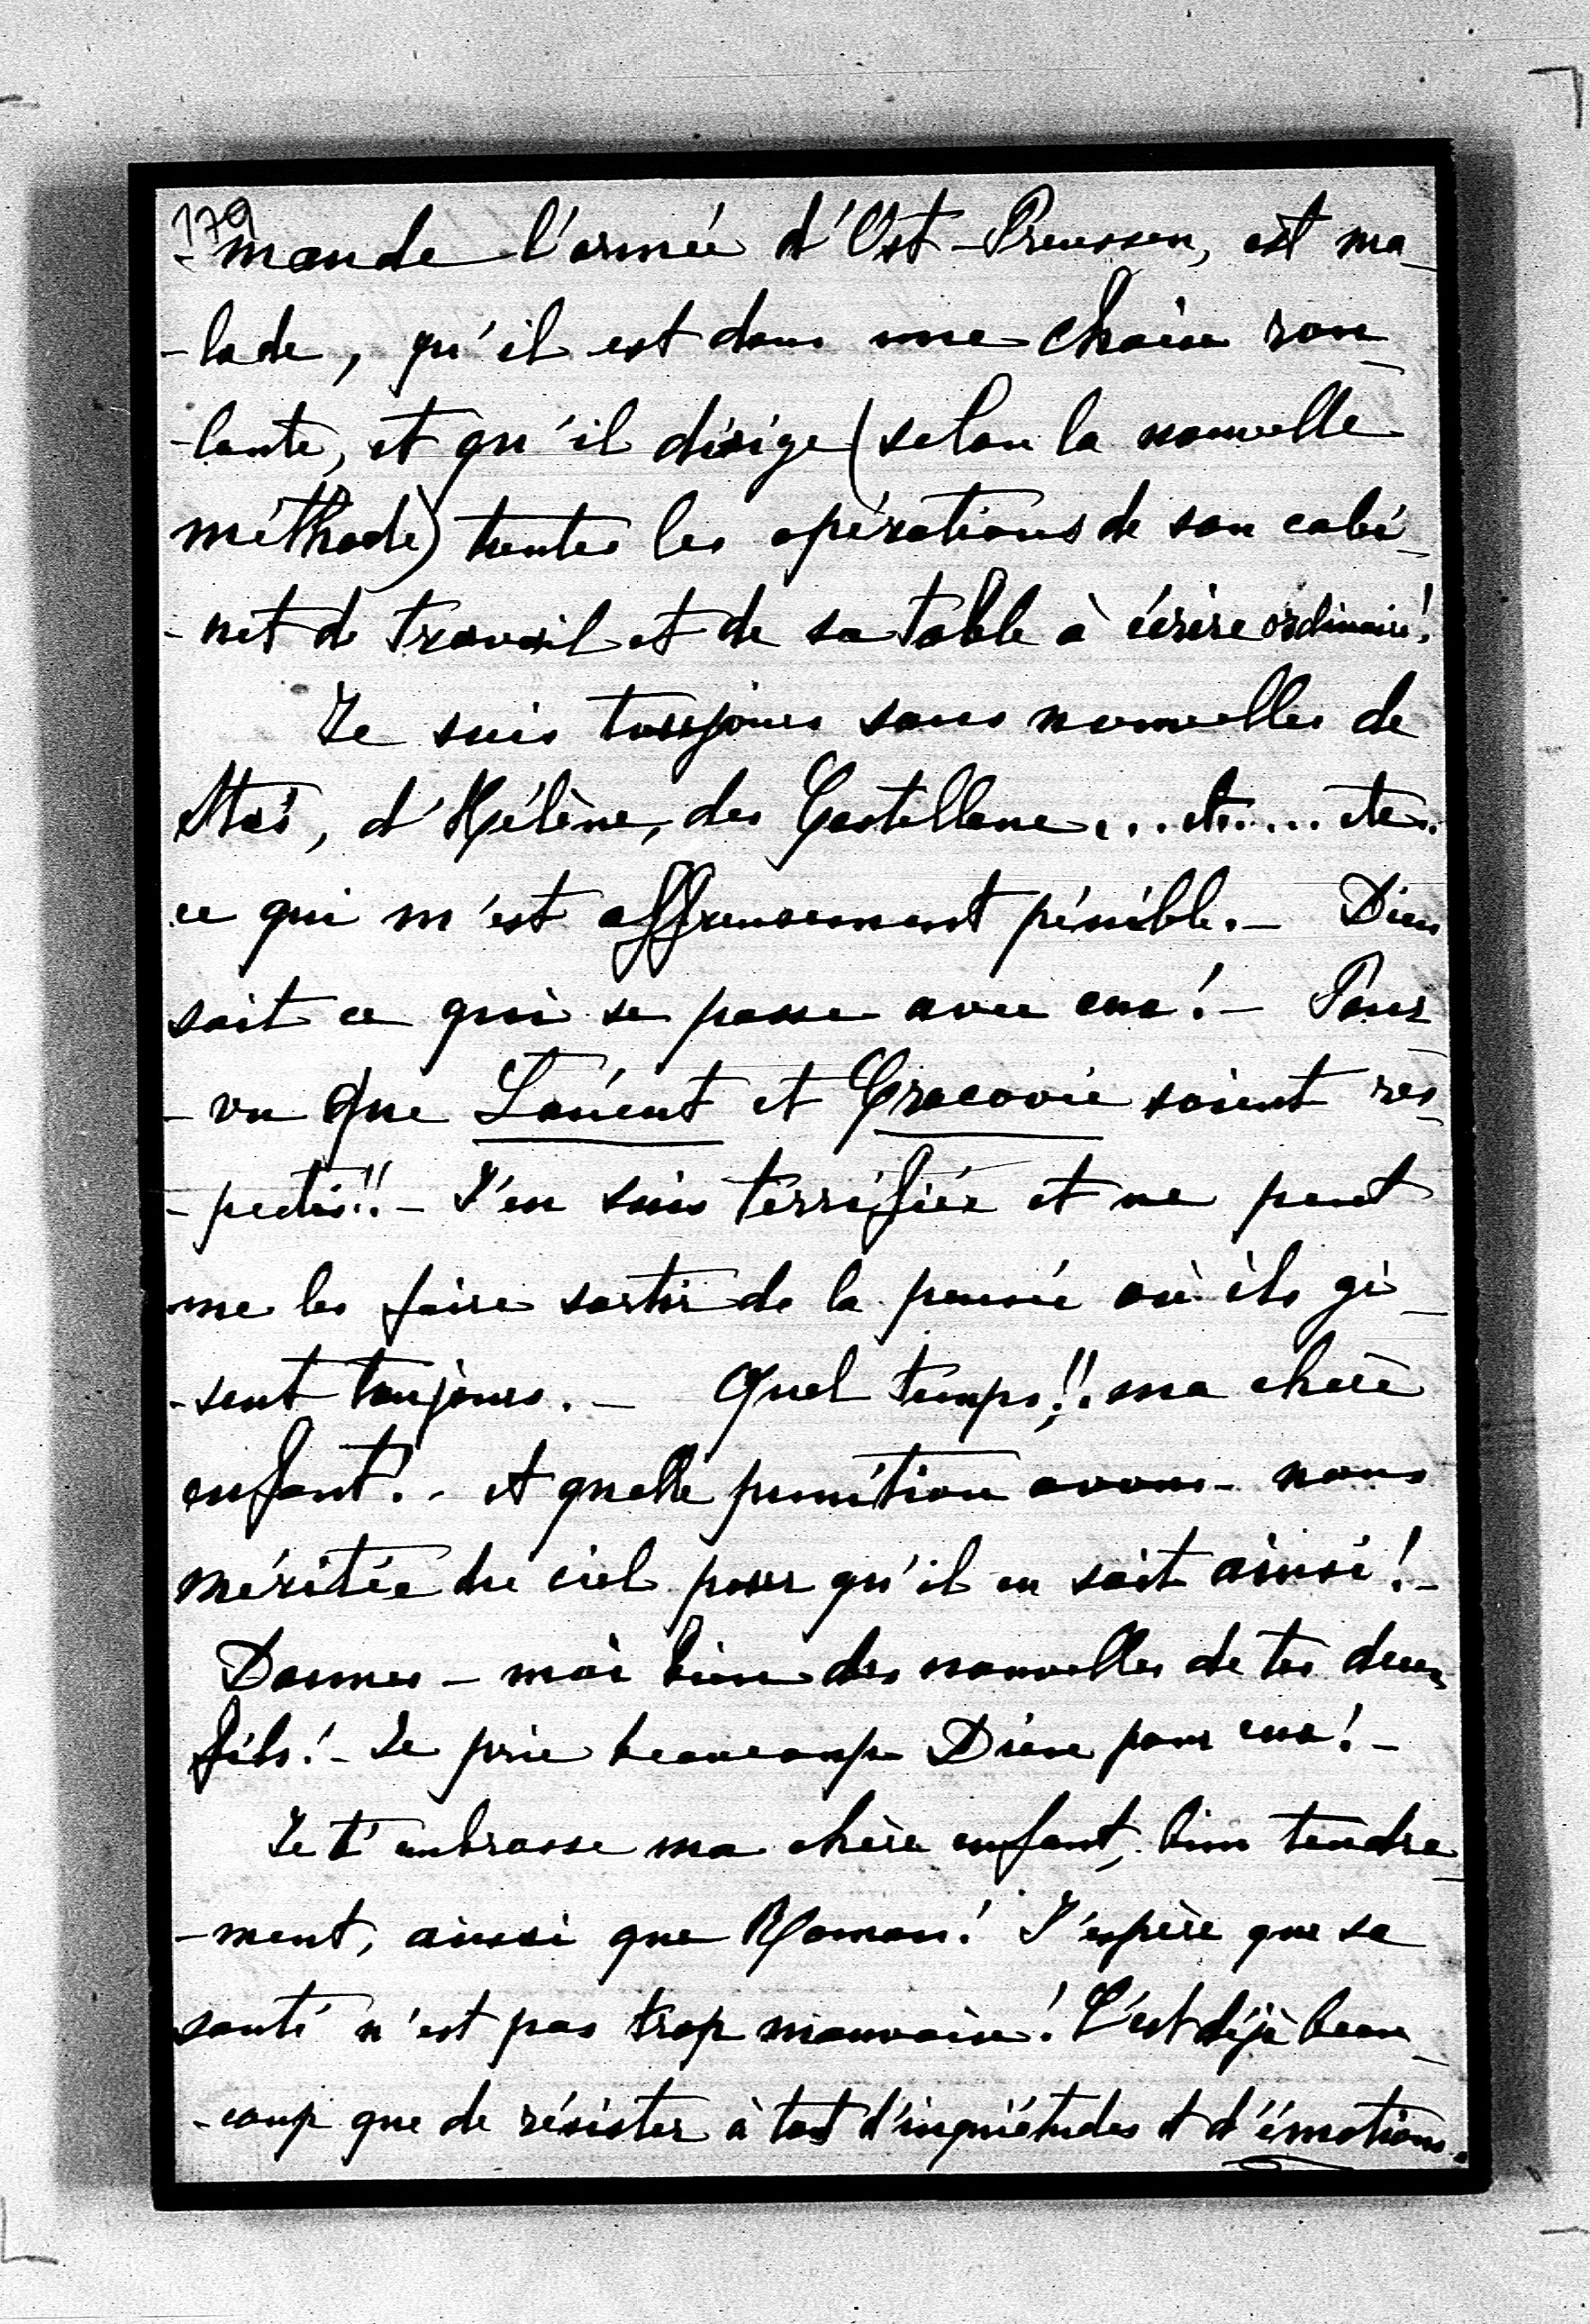 179
-mande l'armée d'Ost-Preussen, est ma-
-lade, qu'il est dans une chaise rou-
-lante, et qu'il dirige (selon la nouvelle
méthode) toutes les opérations de son cabi-
-net de travail et de sa table à écrire ordinaire!
Je suis toujours sans nouvelles de
Stas, d'Hélène, des Castellane... etc.... etc..
ce qui m'est affreusement pénible. - Dieu
sait ce qui se passe avec eux! - Pour
-vu que Łańcut et Cracovie soient res-
-pectés!! - J'en suis terrifiée et ne peut
me les faire sortir de la pensée où ils gi-
-sent toujours. - Quel temps!! ma chère
enfant.. et quelle punition avons-nous
méritée du ciel pour qu'il en soit ainsi! -
Donnes-moi bien des nouvelles de tes deux
fils! - Je prie beaucoup Dieu pour eux! -
Je t'embrasse ma chère enfant, bien tendre-
-ment, ainsi que Roman! J'espère que sa
santé n'est pas trop mauvaise! C'est déjà beau-
-coup que de résister à tant d'inquiétudes et d'émotions.